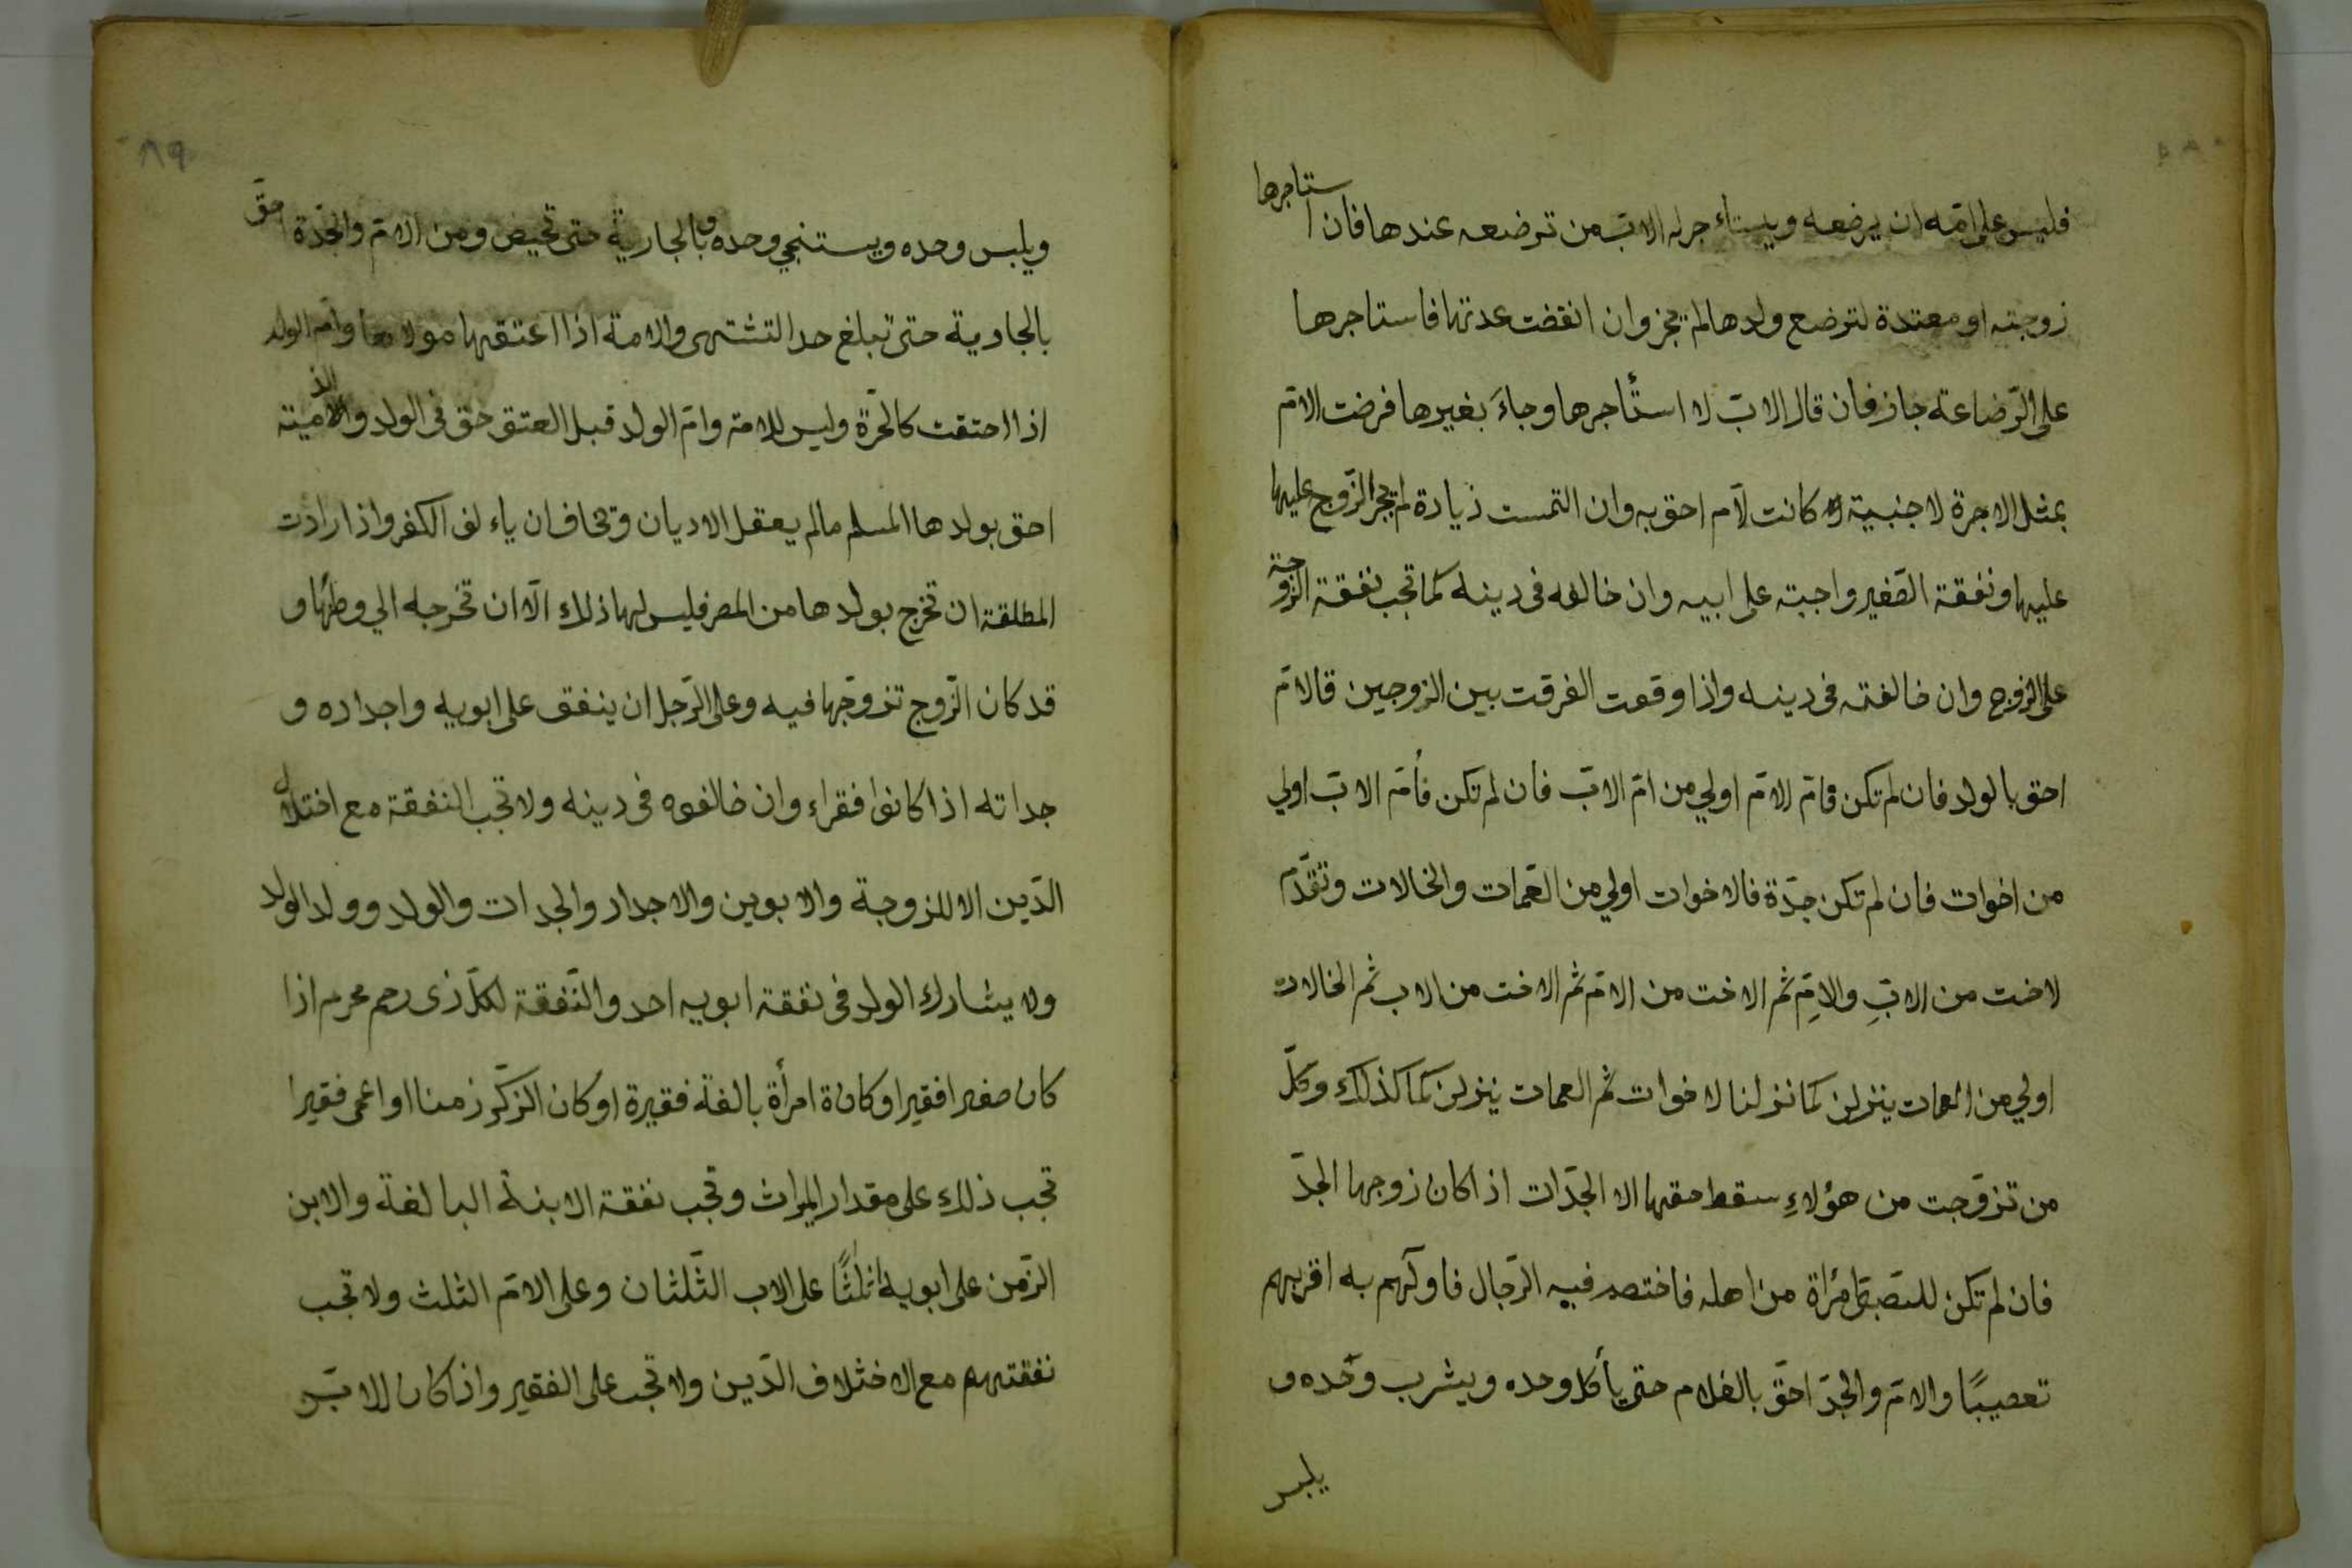 فليس على امّه ان يرضعه ويستاء جر له الابّ من ترضعه عندها فان استاجرها
زوجته او معتدة لترضع ولدها لم يجز وان انقضت عدتها فاستاجرها
على الرّضاعة جاز فان قال الابّ لا استأجرها وجاءَ بغيرها فرضت الامّ
بمثل الاجرة لاجنبية كانت لآم احق به وان التمست زيادة لم يجبر الزّوج عليها
عليها ونفقة الصّغير واجبته على ابيه وان خالفه في دينه كما تجب نفقة الزّوجة
على الزوج وان خالفته في دينه واذا وقعت الفرقت بين الزوجين فالامّ
احق بالولد فان لم تكن فامّ الامّ اولي من امّ الابّ فان لم تكن فأمّ الابّ اولي
من اخوات فان لم تكن جدّة فالاخوات اولي من العّمات والخالات وتقدّم
لاخت من الابِّ والامِّ ثم الاخت من الامّ ثم الاخت من الاب ثم الخالات
اولي من العمات ينزلن كما نزلنا لاخوات ثم العمات ينزلن كما كذلك وكلّ
من تزوّجت من هؤلاءِ سقط حقها الا الجدّات اذا كان زوجها الجدّ
فان لم تكن للصّبيّ امرُاة من اهله فاختصم فيه الرّجال فاولٓهم به اقربهم
تعصيبًا والامّ والجدّ احقّ بالغلام حتى يأكل وحده ويشرب وحّده و
يلبس
٨٩
ويلبس وحده ويستنجي وحده وبالجارية حتى تحيض ومن الامّ والجدّة احقّ
بالجارية حتى تبلغ حدا لتشتهى والامة اذا اعتقها مولاها وامّ الولد
اذا احتقت كالحرّة وليس للامة وامّ الولد قبل العتق حق في الولد والذمّيته
احق بولدها المسلم مالم يعقل الاديان وتخاف ان ياء لف الكفر واذا رادت
المطلقة ان تخرج بولدها من المصر فليس لها ذلك الّا ان تخرجه الي وطنها و
قد كان الزّوج تزوّجها فيه وعلى الرّجل ان ينفق على ابويه واجداده و
جداته اذا كانوا فقراء وان خالفوه في دينه ولا تجب النفقة مع اختلاف
الدّين الا للزوجة والابوين والاجداد والجدات والولد وولد الولد
ولا يشارك الولد في نفقة ابويه احد والنّفقة لكلّ ذى رحم محرم اذا
كان صغيرا فقيرا او كانة امرأة بالغة فقيرة او كان الزكّر زمنا او اعمى فقيرا
تجب ذلك على مقدار الميراث وتجب نفقة الابنة البالغة والابن
الزّمن على ابويه اثلثًا على الاب الثّلثان وعلى الامّ الثلث ولا تجب
نفقتهم مع الاختلاف الدّين ولا تجب على الفقير واذا كان للابّن